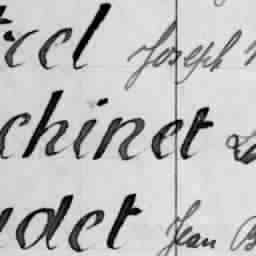 icel Joseph
chinet
udet Jean B